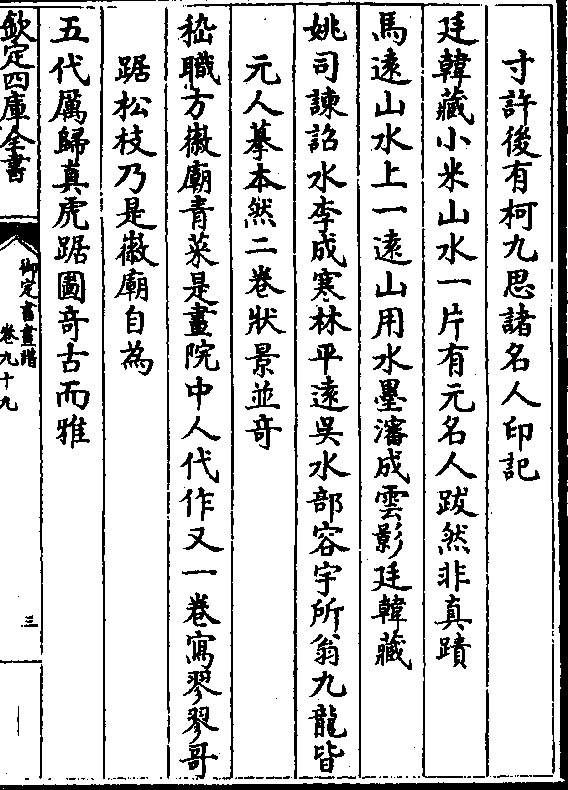 寸許後有柯九思諸名人印記
廷韓藏小米山水一片有元名人跋然非真蹟
馬遠山水上一遠山用水墨瀋成雲影廷韓藏
姚司諫詔水李成寒林平遠吳水部容宇所翁九龍皆
元人摹本然二卷狀景並奇
嵇職方徽廟青菜是畫院中人代作又一卷寫翏翏哥
踞松枝乃是徽廟自為
五代厲歸真虎踞圖奇古而雅
欽定四庫全書
御定書畫譜
卷九十九
三